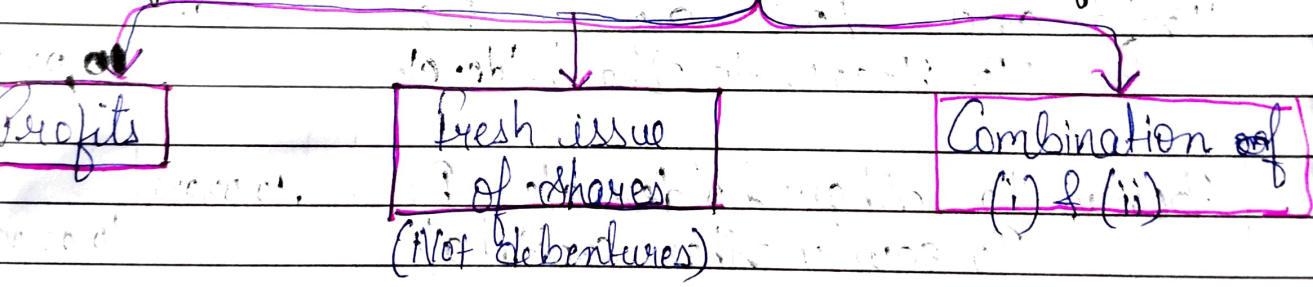 Profits
Fresh issue
of shares
(Not debentures)
Combination of
(i) & (ii)